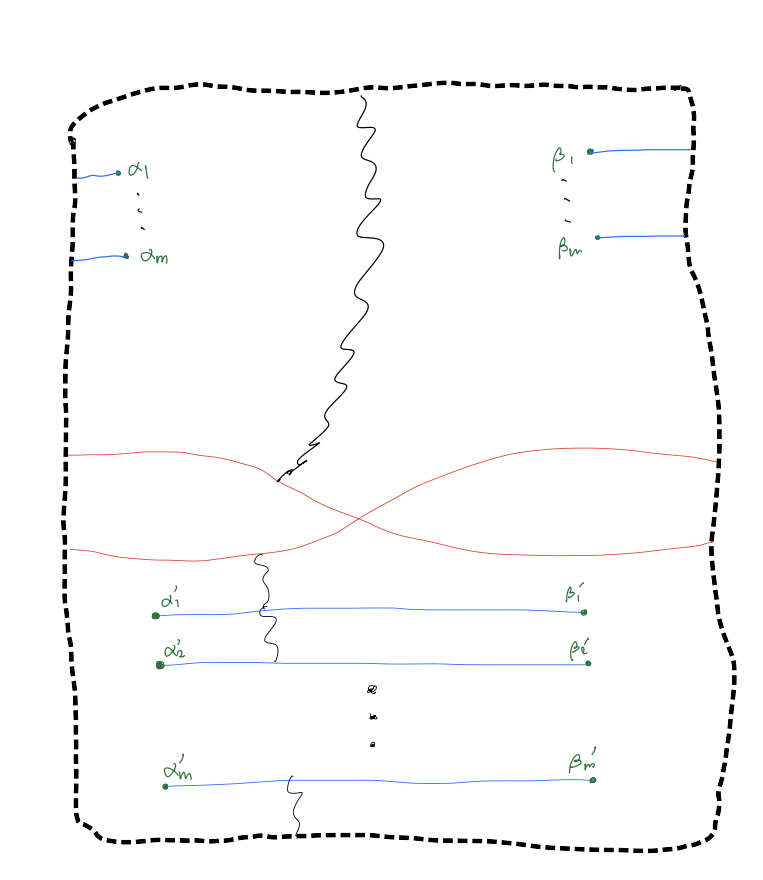 α1 β1
αm βm
α'1 β'1
α'2 β'2
α'm β'm